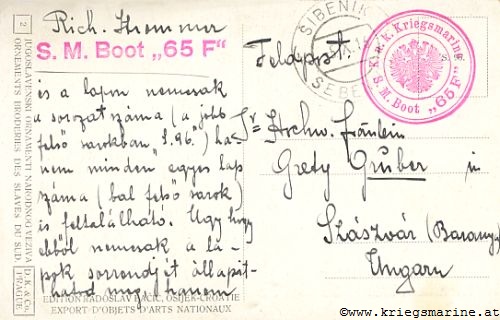 Rich. Krommer
S. M. Boot „65 F"
és a lapon nemcsak
a sorozatszáma (a jobb
felső sarokban „S. 96.") ha-
nem minden egyes lap
száma (bal felső sarok)
is feltalálható. Úgy hogy
ebből nemcsak a la-
pok sorrendjét állapit-
hatod meg, hanem
2
JUGOSLAVENSKI ORNAMENTI NARODNOG VEZIVA
ORNEMENTS BRODERIES DES SLAVES DU SUD.
D. K. & Co. PRAGUE.
EDITION RADOSLAV BAČIĆ, OSIJEK-CROATIE
EXPORT D'OBJETS D'ARTS NATIONAUX
SIBENIK
Feldpost.
K. u. k. Kriegsmarine
S. M. Boot „65 F"
Hochw. Fräulein
Grety Gruber in
Szászvár (Baranya)
Ungarn
© www.kriegsmarine.at